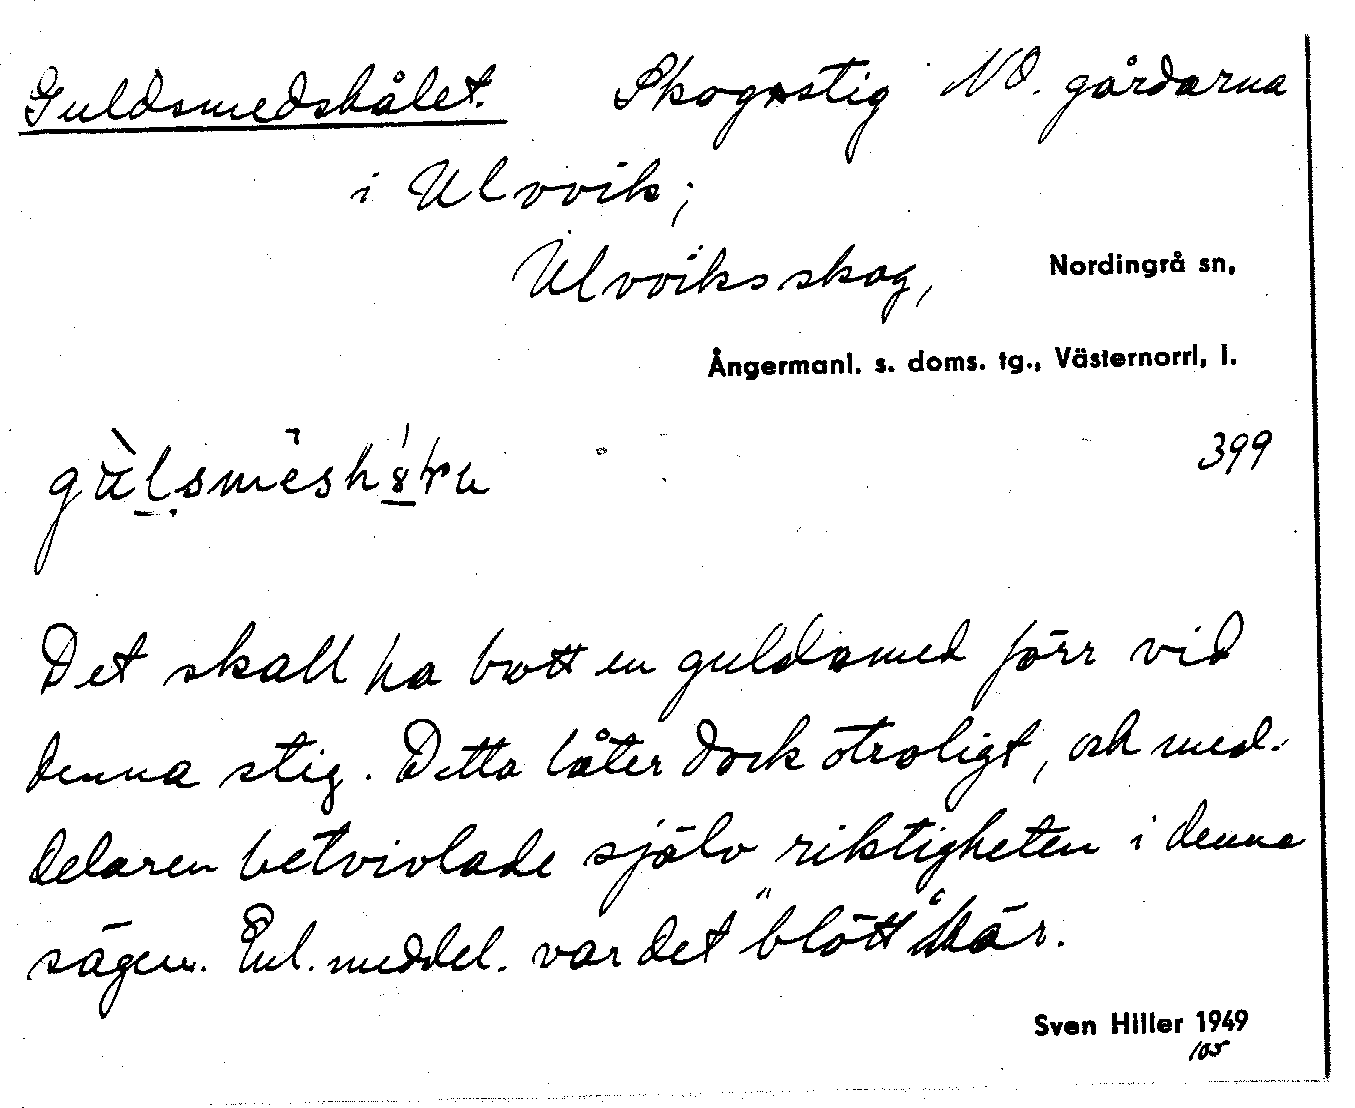 Guldsmedshålet. Skogsstig NO. gårdarna
i Ulvvik;
Ulvviksskog, Nordingrå sn,
Ångermanl. s. doms. tg., Västernorrl, l.
399
Det skall ha bott en guldsmed förr vid
denna stig. Detta låter dock otroligt, och med-
delaren betvivlade själv riktigheten i denna
sägen. Enl. meddel. var det "blött" här.
Sven Hiller 1949
105